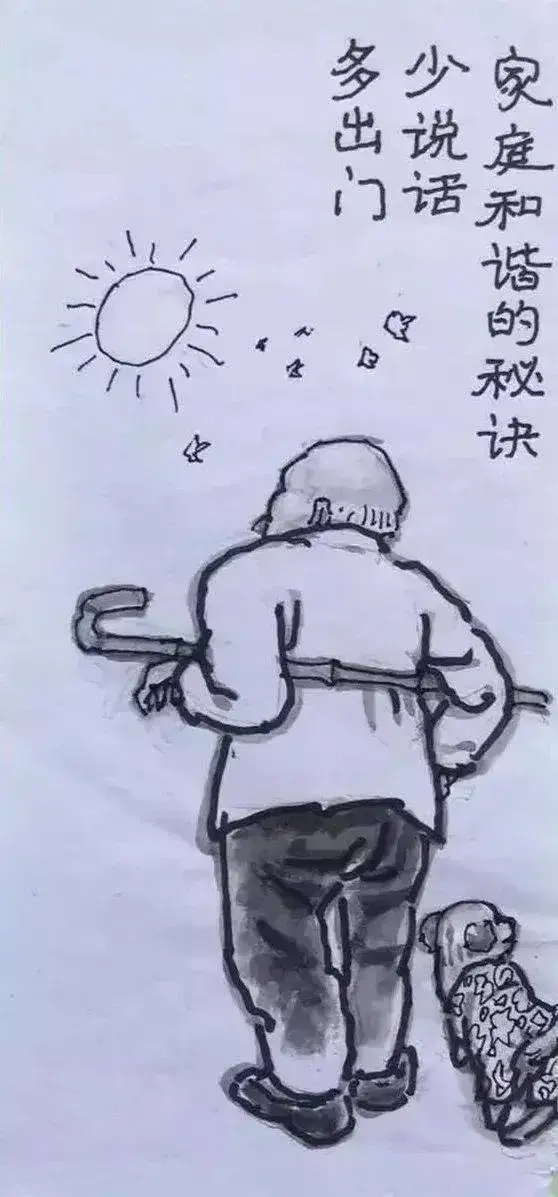 家庭和谐的秘诀
少说话
多出门